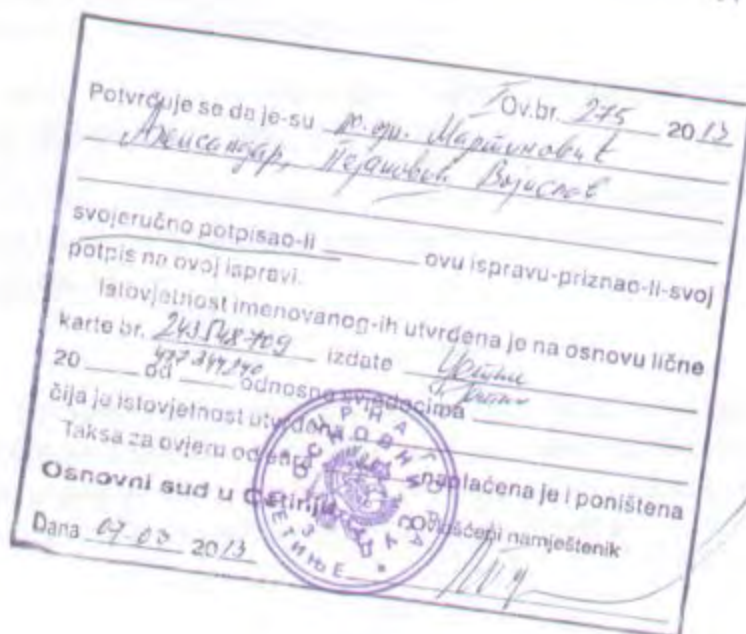 Ov.br. 275 2013
Potvrđuje se da je-su Мартиновић
Александар, Пејановић Војислав
svojeručno potpisao-li ovu ispravu-priznao-li-svoj
potpis na ovoj ispravi.
Istovjetnost imenovanog-ih utvrđena je na osnovu lične
karte br. 243548709 izdate
20 od odnosno svjedocima
čija je istovjetnost utvrđena
Taksa za ovjeru od naplaćena je i poništena
Osnovni sud u Cetinju Ovlašćeni namještenik
Dana 07.03 2013
ЦРНА ГОРА
ОСНОВНИ СУД
ЦЕТИЊЕ